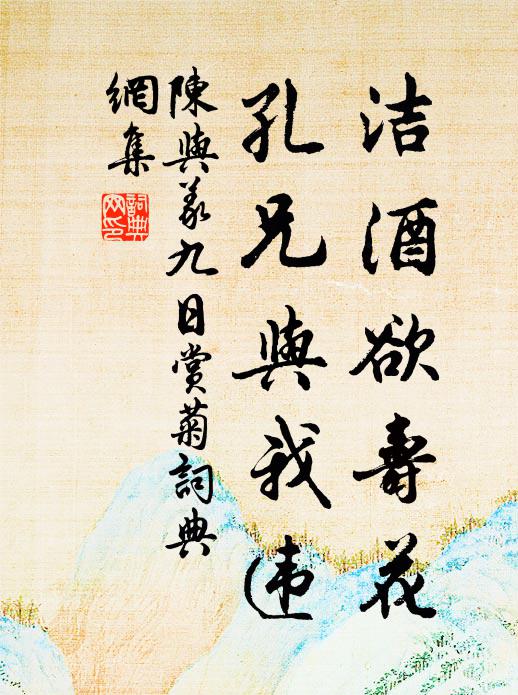 洁酒欲壽花
孔兄與我违
陳與義九日賞菊詞典
網集
詞典
网印